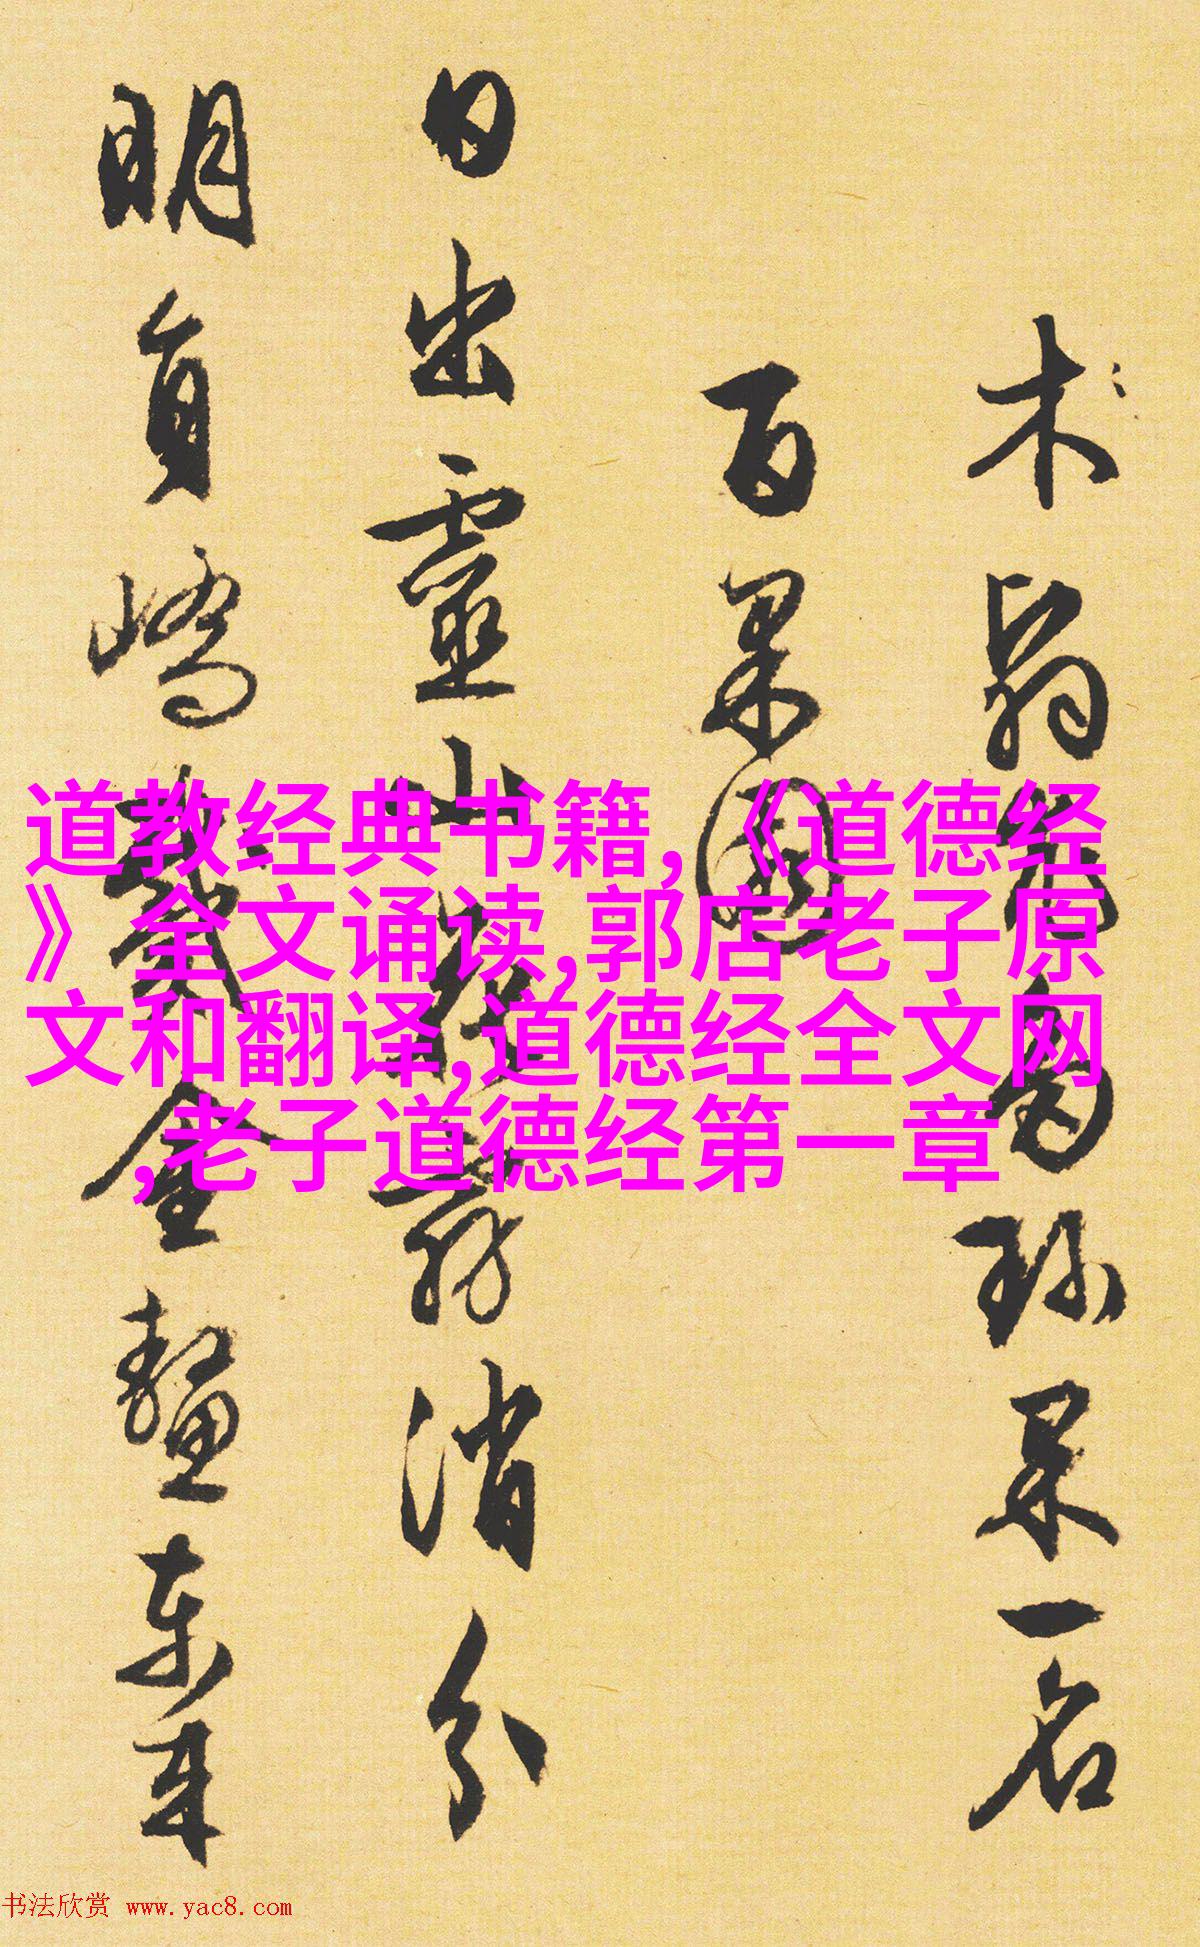 木翁珍果一名
百果圖
日出靈山消分
明員嶠金鰲東來
道教经典书籍,《道德经
》全文诵读,郭店老子原
文和翻译,道德经全文网
,老子道德经第一章
书法欣赏 www.yac8.com